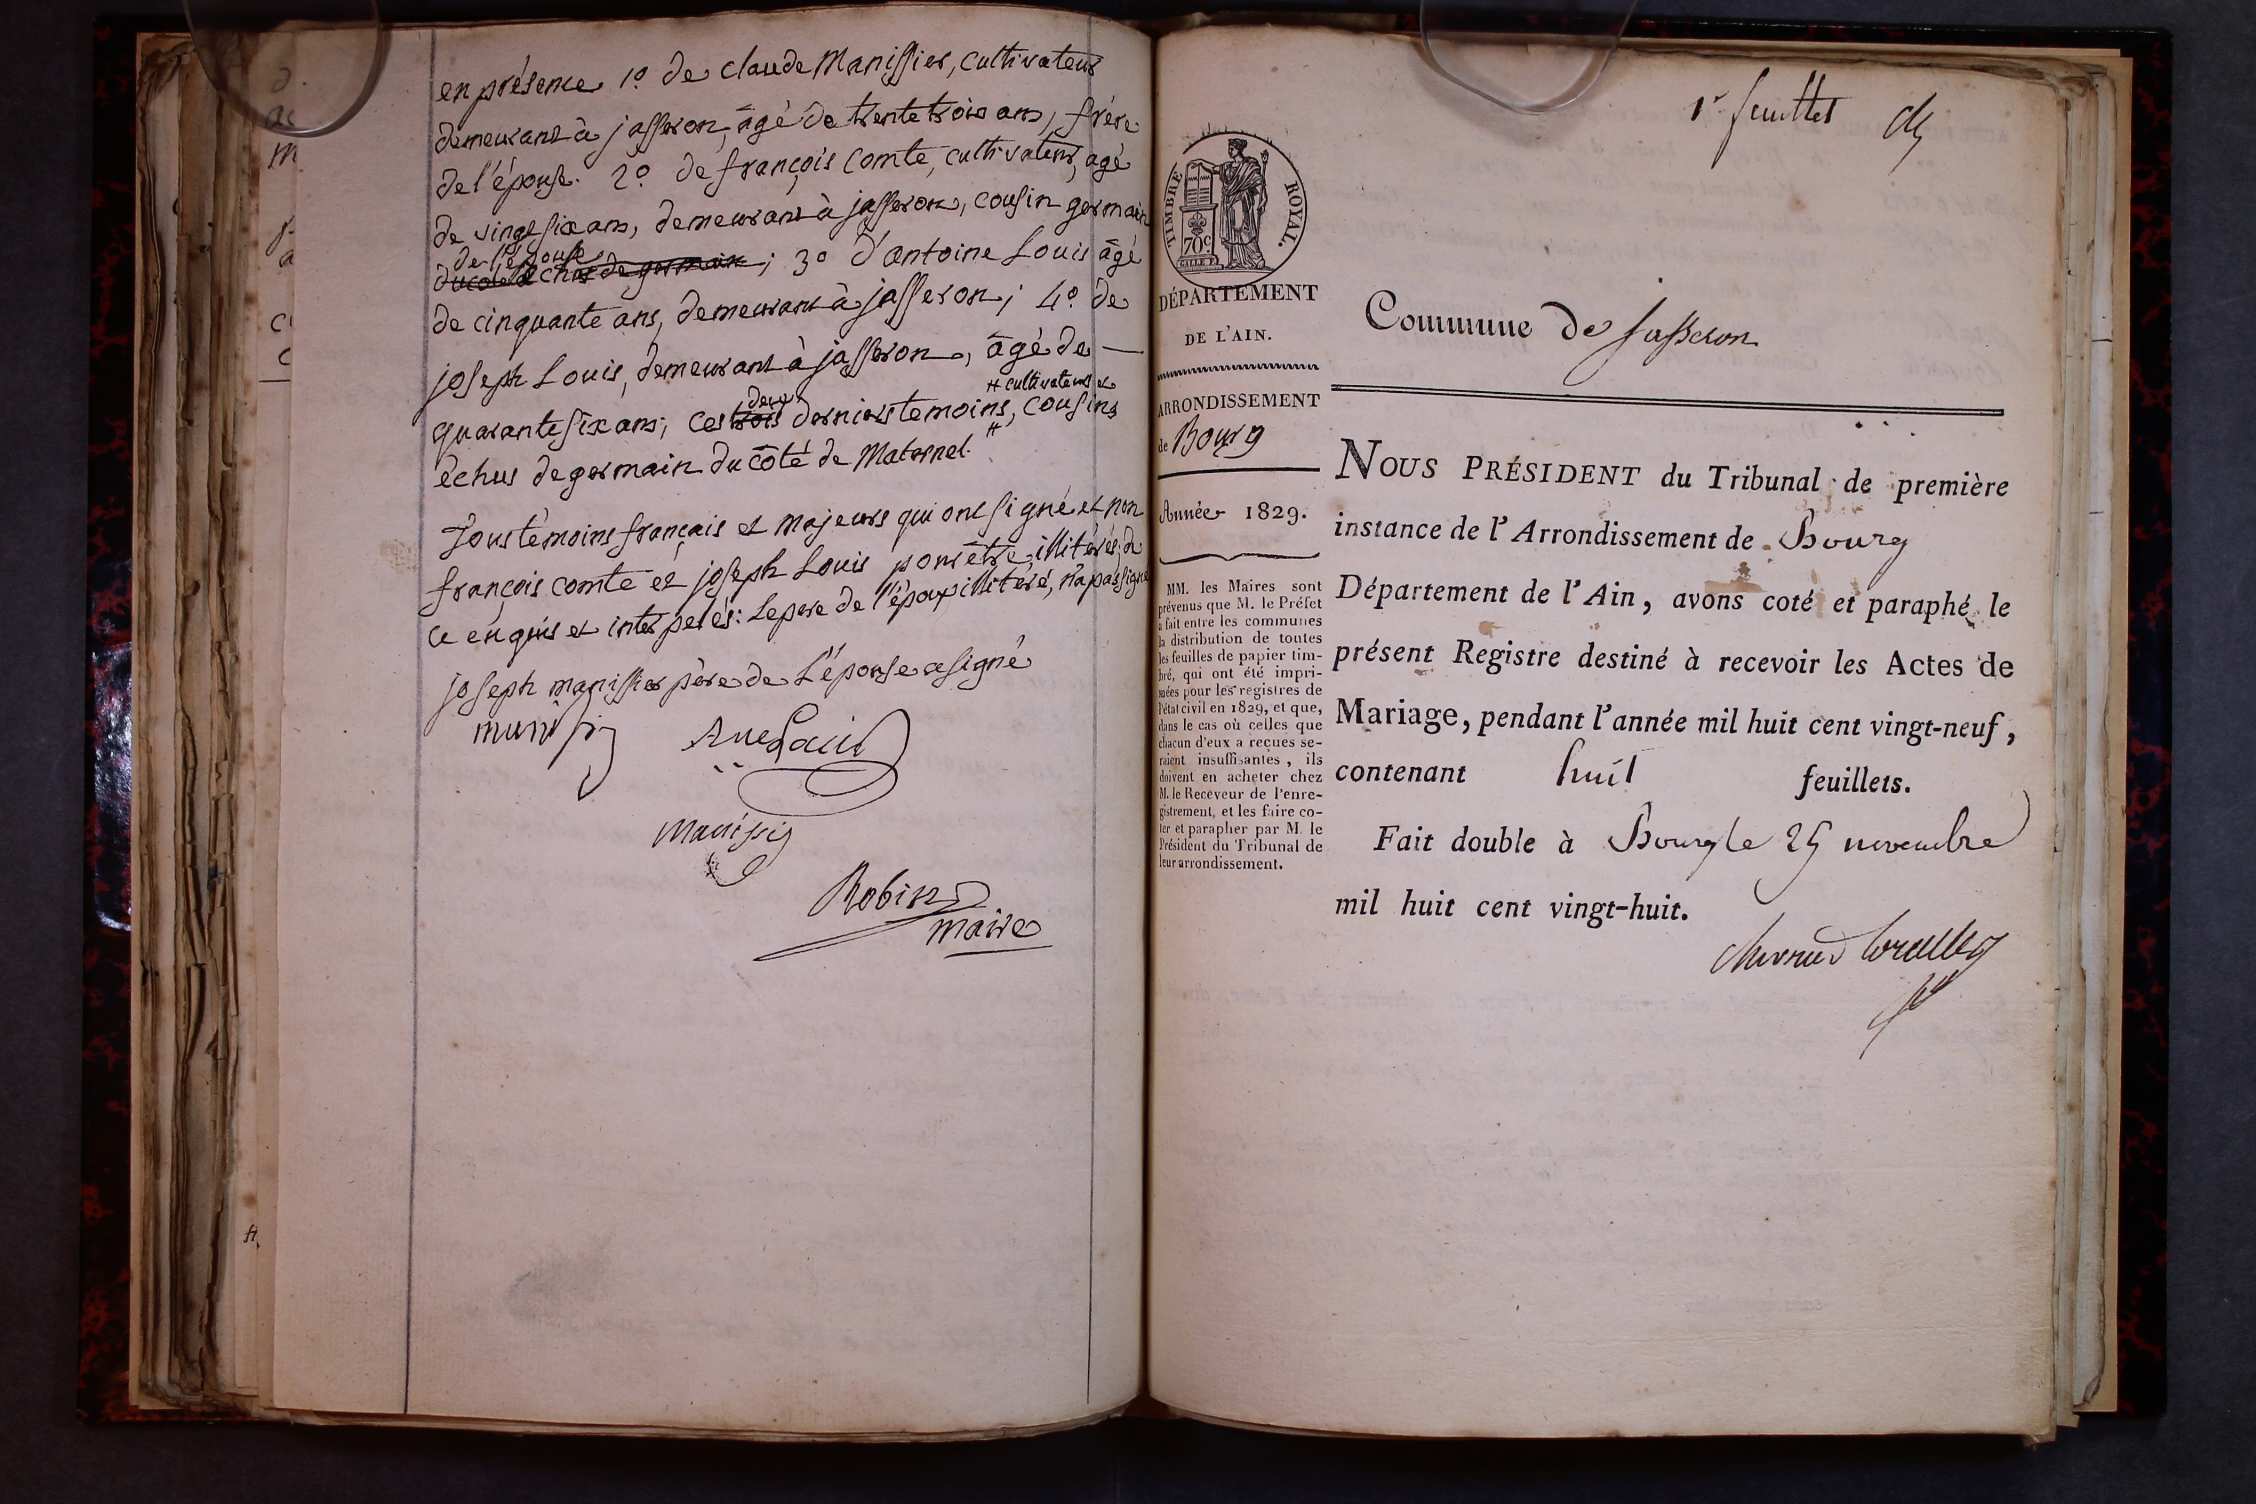 en présence 1.o de claude Manissier, cultivateur
demeurant à jasseron, âgé de trente trois ans, frère
de l'épouse. 2.o de françois Comte, cultivateur, agé
de vingt six ans, demeurant à jasseron, cousin germain
de l'épouse
du côté échus de germain ; 3o d'antoine Louis âgé
de cinquante ans, demeurant à jasseron ; 4.o de
joseph Louis, demeurant à jasseron, âgé de —
# cultivateurs et
deux
quarante six ans ; ces trois derniers temoins, cousins
échus de germain du côté de Maternel. #
Tous témoins français et majeurs qui ont signé et non
françois comte et joseph Louis pour être illitérés, de
ce enquis et interpelés : Le pere de l'époux illitéré, n'a pas signé
joseph manissier père de L'épouse a signé
manissier
Ane Louis
Manissier
Robin
maire
1r feuillet
TIMBRE ROYAL.
70c.
DÉPARTEMENT
DE L'AIN.
ARRONDISSEMENT
de Bourg
Année 1829.
MM. les Maires sont
prévenus que M. le Préfet
a fait entre les communes
la distribution de toutes
les feuilles de papier tim-
bré, qui ont été impri-
mées pour les registres de
l'état civil en 1829, et que,
dans le cas où celles que
chacun d'eux a reçues se-
raient insuffisantes, ils
doivent en acheter chez
M. le Receveur de l'enre-
gistrement, et les faire co-
ter et parapher par M. le
Président du Tribunal de
leur arrondissement.
Commune de Jasseron
NOUS PRÉSIDENT du Tribunal de première
instance de l'Arrondissement de Bourg
Département de l'Ain, avons coté et paraphé le
présent Registre destiné à recevoir les Actes de
Mariage, pendant l'année mil huit cent vingt-neuf,
contenant huit feuillets.
Fait double à Bourg le 25 novembre
mil huit cent vingt-huit.